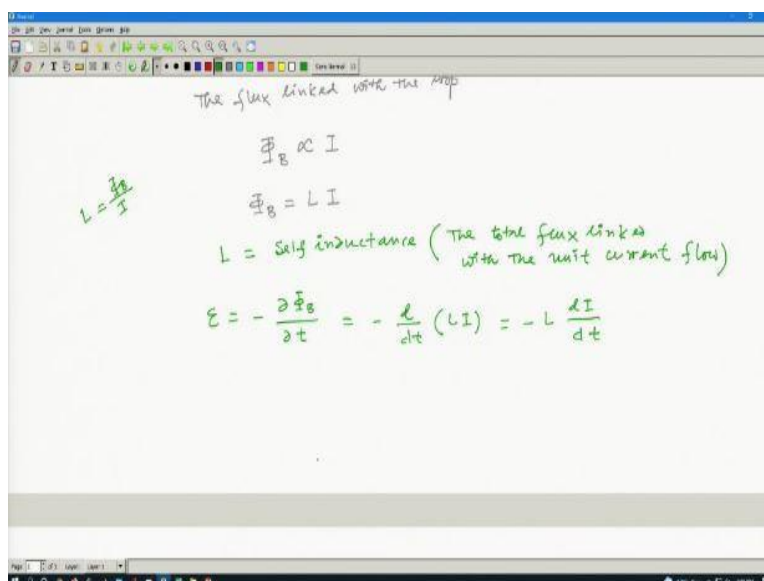 The flux linked with the loop
Φ_B ∝ I
L = Φ_B / I
Φ_B = L I
L = Self inductance (The total flux linked
with the unit current flow)
ε = - ∂Φ_B/∂t = - d/dt (LI) = - L dI/dt